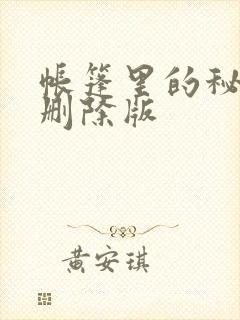 帐篷里的秘
删除版
黄安琪